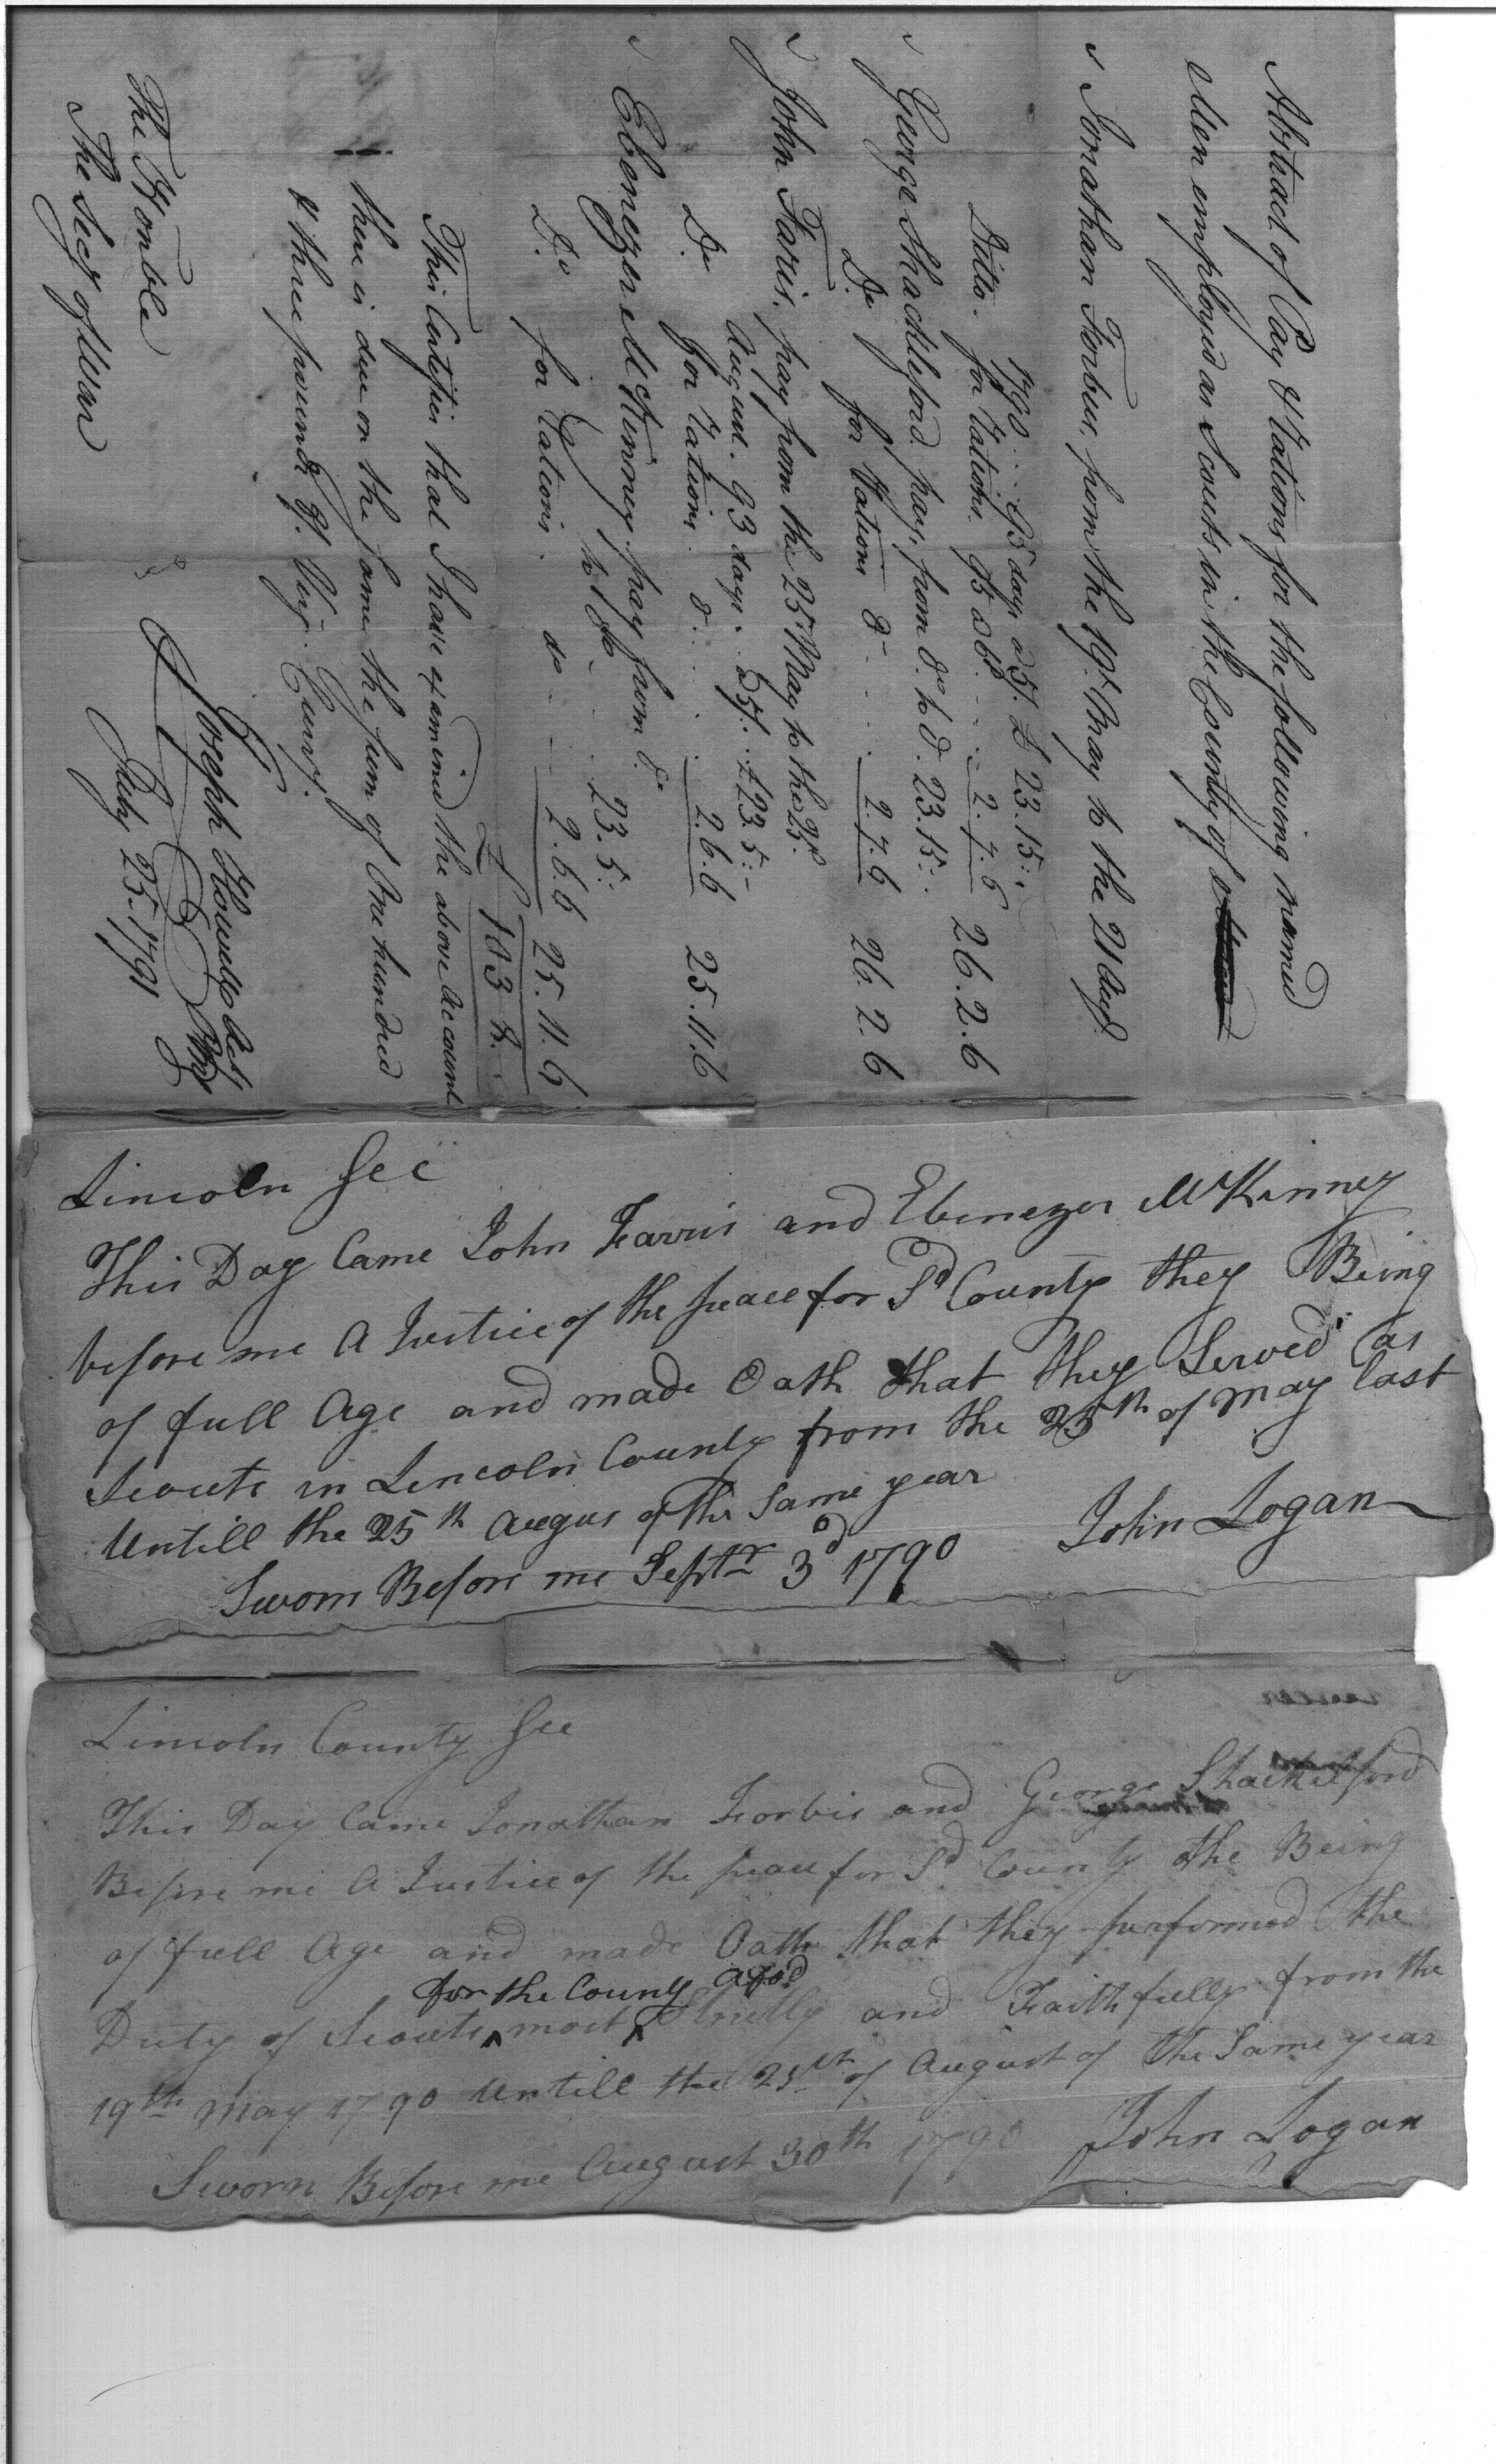 Abstract of Pay & Rations for the following named
Men employed as Scouts in the County of
Jonathan Forbus, from the 19th May to the 21 Augt.
1790 .. 95 days a 5/. £ 23.15:.
Ditto. for rations. 95 a 6d. . . . 2.7.6 26.2.6
George Shackleford. pay, from do. to do. 23.15:.
Do for Rations do . . . 2.7.6 26.2.6
John Faris, pay from the 25 May to the 25th.
August. 93 days. a 5/. £23.5:-
Do for rations. do . . . 2.6.6 25.11.6
Ebenezer McKinney. pay from do.
to do . . . 23.5:
Do for rations. do 2.6.6 25.11.6
£ 103 8.
This Certifies that I have examined the above account
there is due on the same, the sum of One hundred
& three pounds 8/. Virg. Curry.
Joseph Howell
July 25. 1791
The Honble
The Secy of War
Lincoln Sct
This Day Came John Farris and Ebenezer McKinney
before me A Justice of the peace for Sd County they Being
of full Age and made Oath that they Served as
Scouts in Lincoln County from the 25th of May last
Untill the 25th Augus of the Same year
Sworn Before me Septr 3d 1790 John Logan
Lincoln County Sct
This Day Came Jonathan Forbis and George Shackelford
Before me A Justice of the peace for Sd County the Being
of full Age and made Oath that they purformed the
for the County afosd
Duty of Scouts ^ most ^ Strictly and Faithfully from the
19th May 1790 Untill the 21st of August of the Same year
Sworn Before me August 30th 1790 John Logan